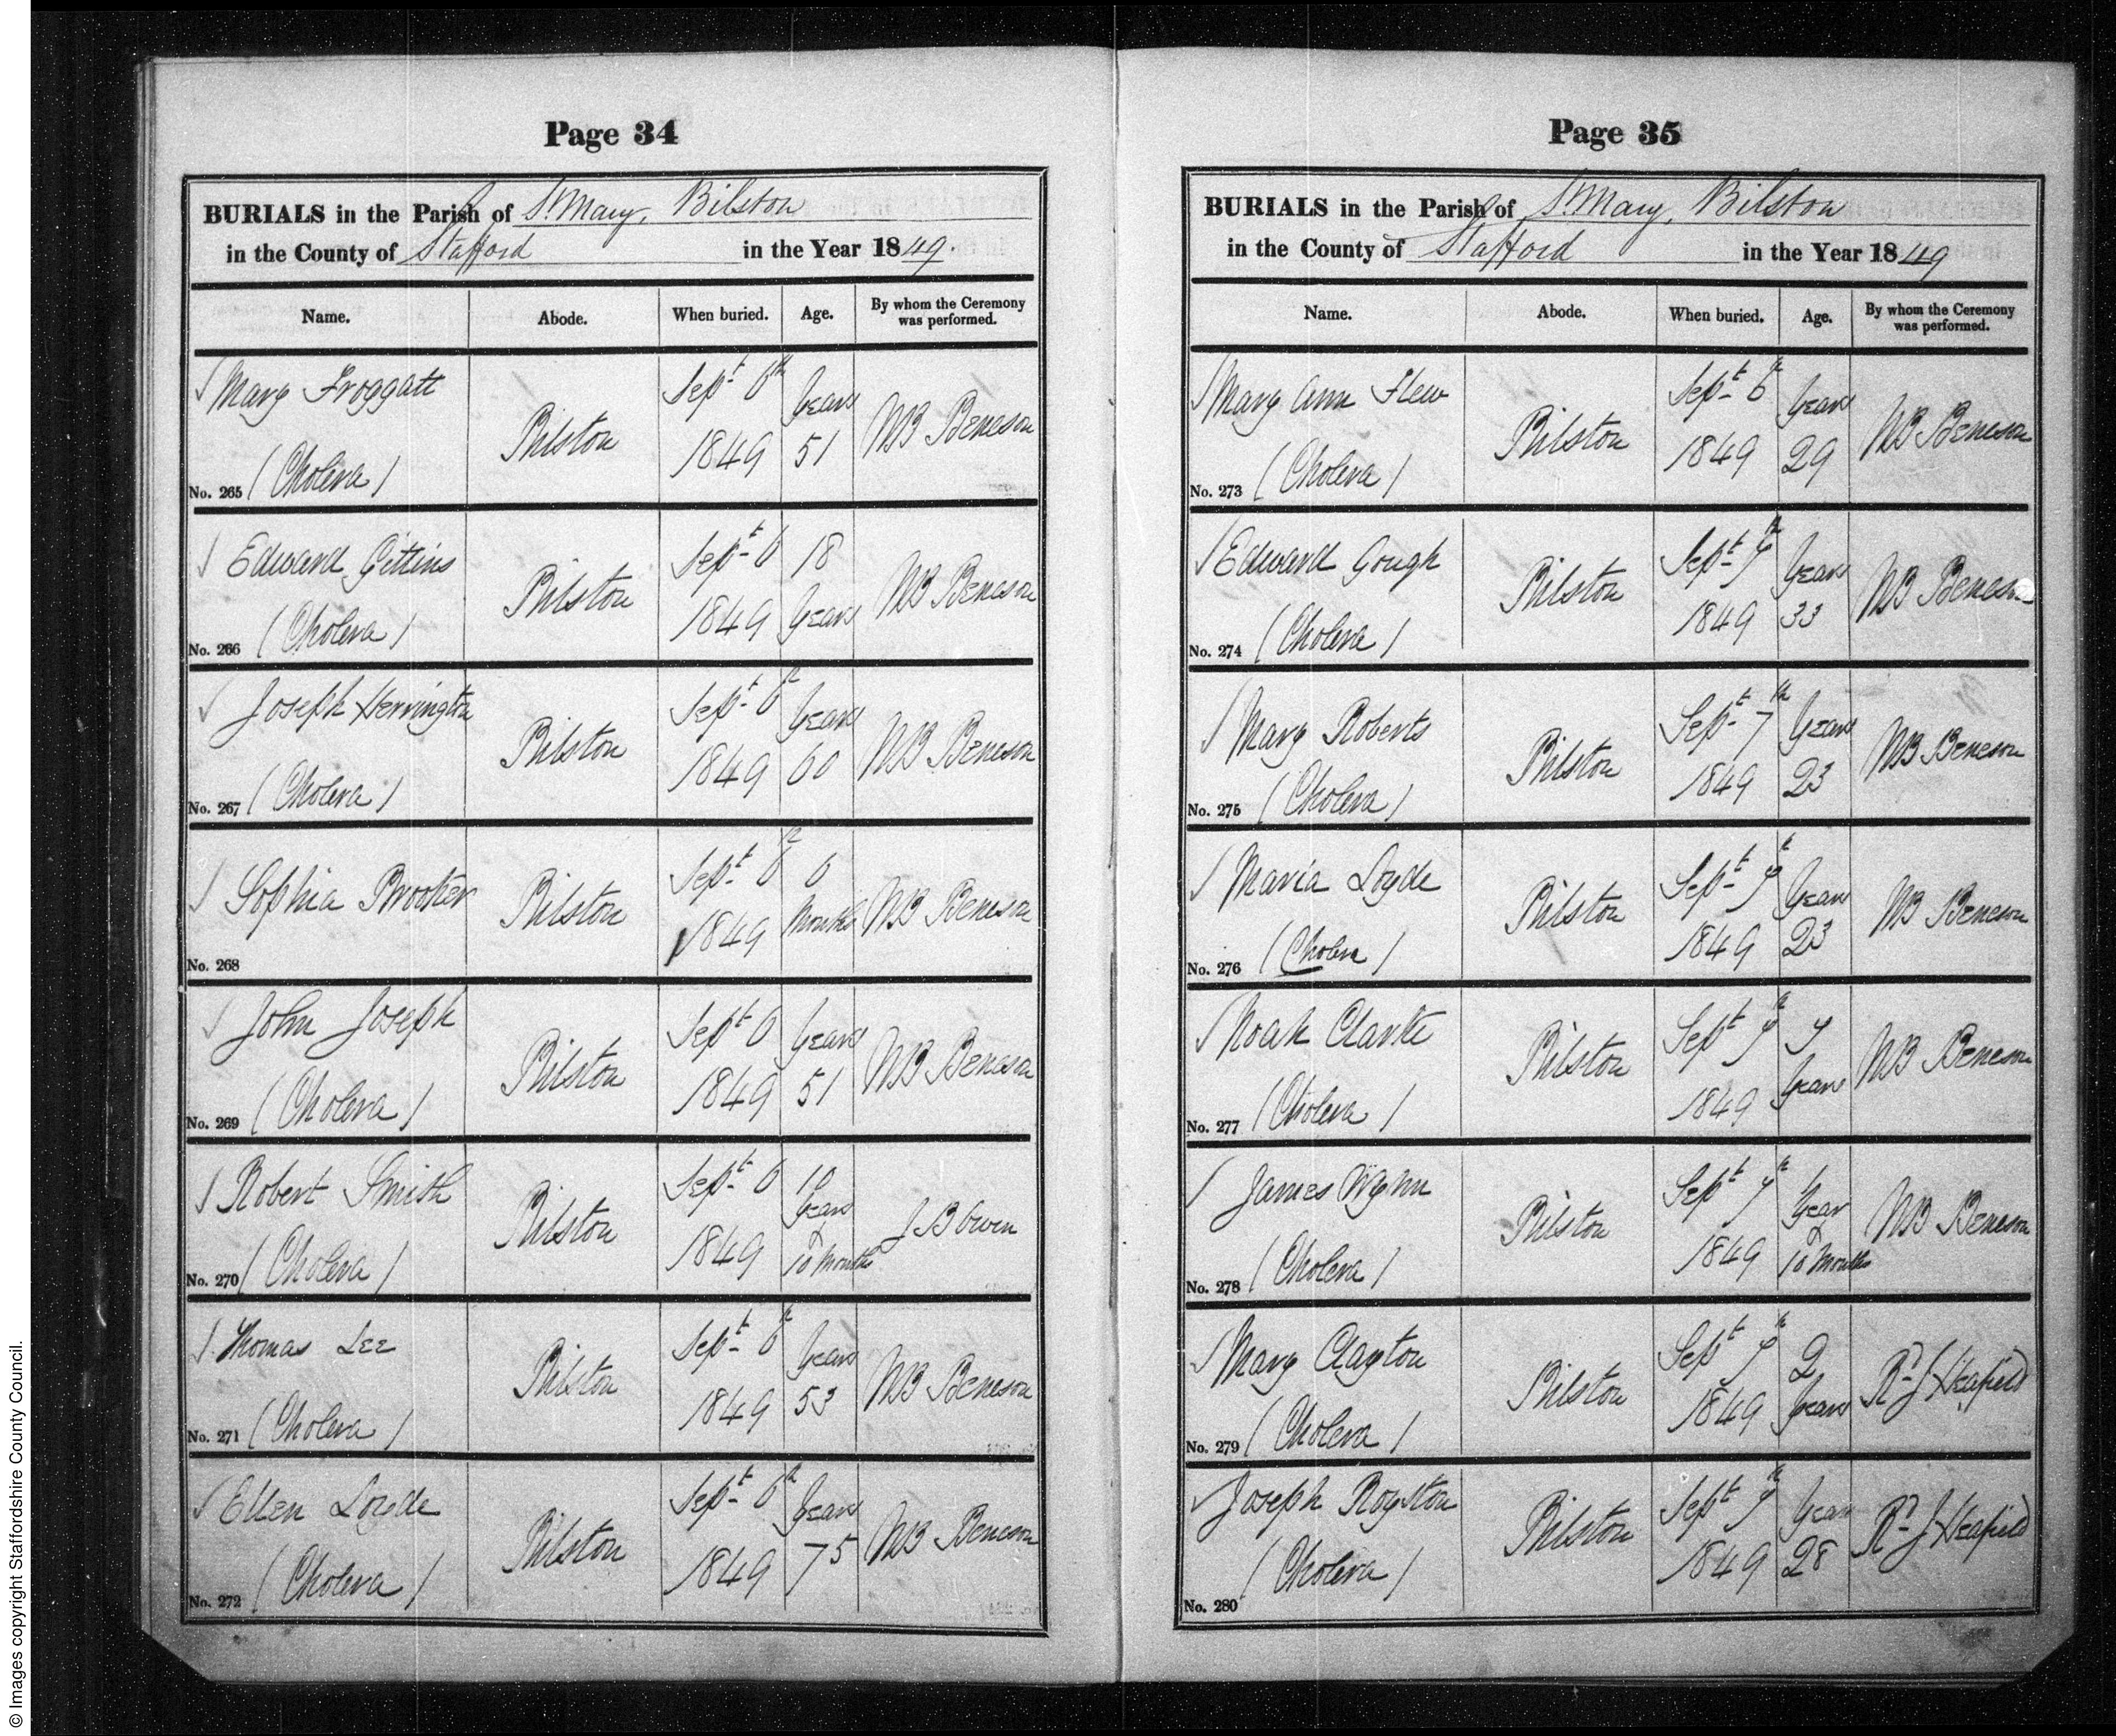 Page 34
BURIALS in the Parish of St Mary, Bilston
in the County of Stafford in the Year 1849.
Name. Abode. When buried. Age. By whom the Ceremony was performed.
Mary Froggatt Bilston Sept 6th 1849 Years 51 WB Beneson
(Cholera)
No. 265
Edward Gittins Bilston Sept 6 1849 18 Years WB Beneson
(Cholera)
No. 266
Joseph Herrington Bilston Sept 6th 1849 Years 60 WB Beneson
(Cholera)
No. 267
Sophia Brooker Bilston Sept 6th 1849 6 Months WB Beneson
No. 268
John Joseph Bilston Sept 6 1849 Years 51 WB Beneson
(Cholera)
No. 269
Robert Smith Bilston Sept 6 1849 10 Years & 10 Months J B Owen
(Cholera)
No. 270
Thomas Lee Bilston Sept 6th 1849 Years 53 WB Beneson
(Cholera)
No. 271
Ellen Loyde Bilston Sept 6th 1849 Years 75 WB Beneson
(Cholera)
No. 272
Page 35
BURIALS in the Parish of St Mary, Bilston
in the County of Stafford in the Year 1849
Name. Abode. When buried. Age. By whom the Ceremony was performed.
Mary Ann Flew Bilston Sept 6th 1849 Years 29 WB Beneson
(Cholera)
No. 273
Edward Gough Bilston Sept 7th 1849 Years 33 WB Beneson
(Cholera)
No. 274
Mary Roberts Bilston Sept 7th 1849 Years 23 WB Beneson
(Cholera)
No. 275
Maria Loyde Bilston Sept 7th 1849 Years 23 WB Beneson
(Cholera)
No. 276
Noah Clarke Bilston Sept 7th 1849 7 Years WB Beneson
(Cholera)
No. 277
James Wynn Bilston Sept 7th 1849 1 Year & 10 Months WB Beneson
(Cholera)
No. 278
Mary Clayton Bilston Sept 7th 1849 2 Years Rd J Heafield
(Cholera)
No. 279
Joseph Royston Bilston Sept 7th 1849 Years 28 Rd J Heafield
(Cholera)
No. 280
© Images copyright Staffordshire County Council.